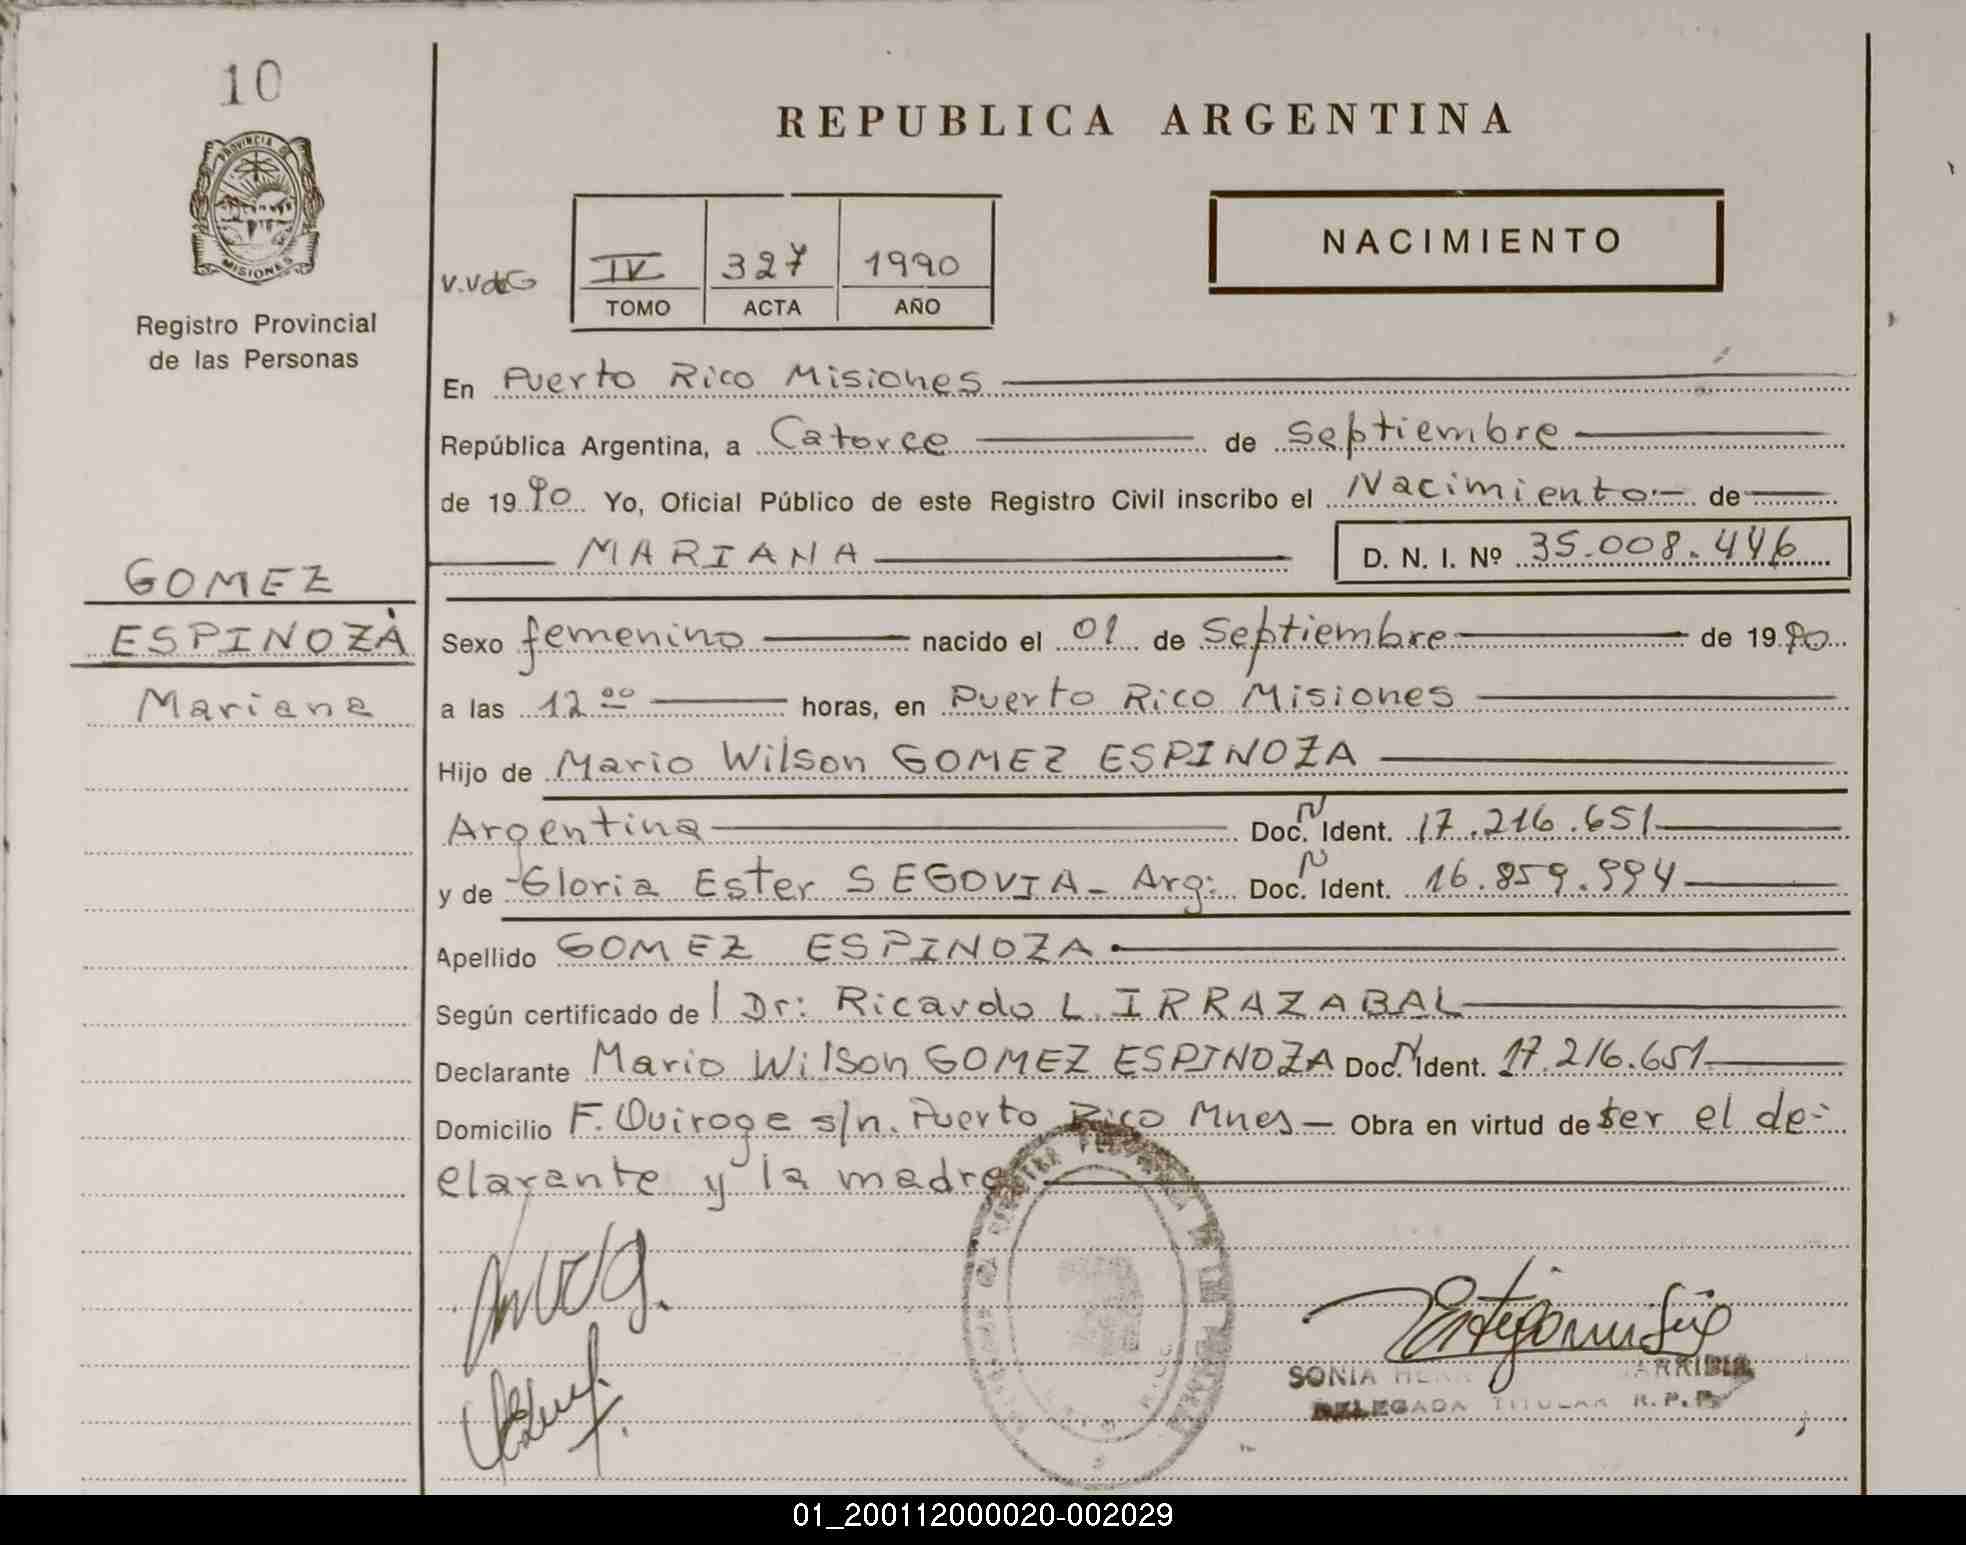 10
REPUBLICA ARGENTINA
PROVINCIA DE
MISIONES
NACIMIENTO
V.VdeG
IV 327 1990
TOMO ACTA AÑO
Registro Provincial
de las Personas
En Puerto Rico Misiones
República Argentina, a Catorce de Septiembre
de 1990 Yo, Oficial Público de este Registro Civil inscribo el Nacimiento.- de
MARIANA D. N. I. Nº 35.008.446
GOMEZ
ESPINOZA
Mariana
Sexo femenino nacido el 01 de Septiembre de 1990
a las 12 00 horas, en Puerto Rico Misiones
Hijo de Mario Wilson GOMEZ ESPINOZA
Argentina Doc. N Ident. 17.216.651
y de Gloria Ester SEGOVIA - Arg: Doc. N Ident. 16.859.994
Apellido GOMEZ ESPINOZA.
Según certificado de l Dr: Ricardo L. IRRAZABAL
Declarante Mario Wilson GOMEZ ESPINOZA Doc. N Ident. 17.216.651
Domicilio F. Quiroga s/n. Puerto Rico Mnes - Obra en virtud de ser el de-
clarante y la madre
SONIA
DELEGADA TITULAR R.P.P.
01_200112000020-002029